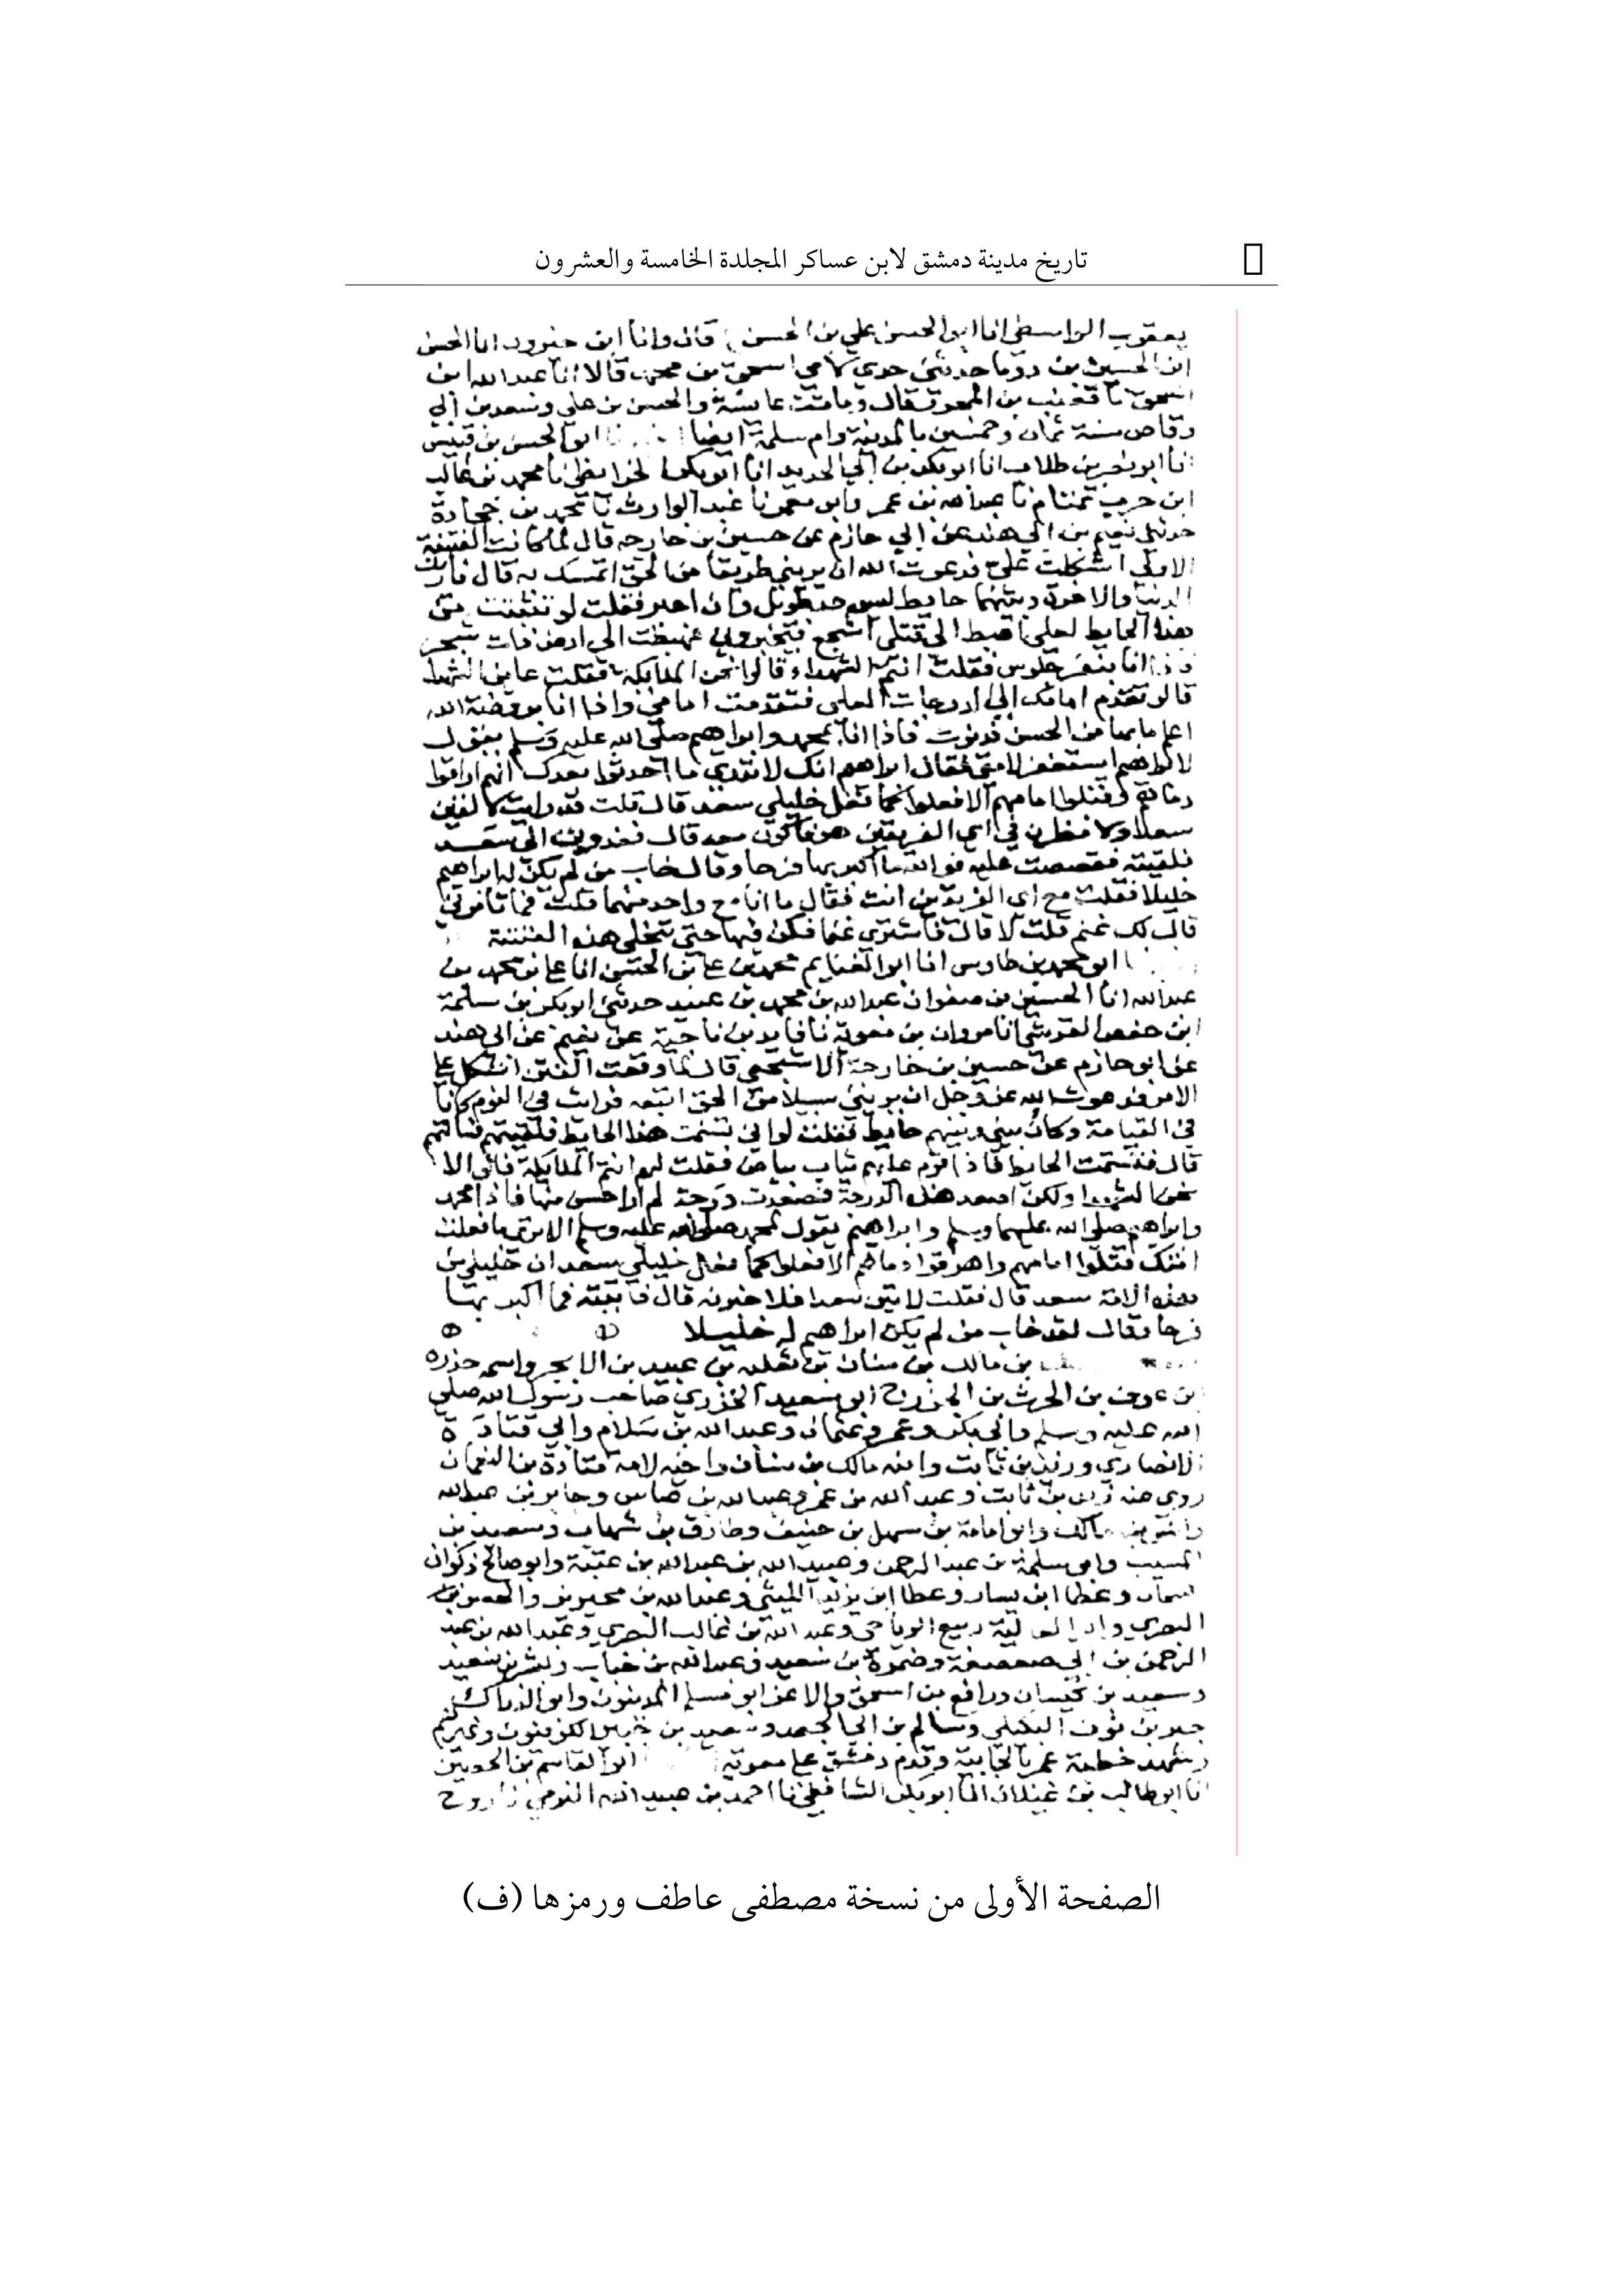 تاريخ مدينة دمشق لابن عساكر المجلدة الخامسة والعشرون
يعقوب الواسطي انا ابو الحسن علي بن الحسن قال وانا ابن انا الحسن
ابن الحسين بن دوما حدثني جدي لامي اسحق بن محمد قالا انا عبد الله ابن
اسحق نا قعنب بن المحرر قال وماتت عايشة والحسن بن علي وسعد بن ابي
وقاص سنة ثمان وخمسين بالمدينة وام سلمة ايضا ابو الحسن بن قبيس
انا ابو نصر بن طلاب انا ابو بكر بن ابي الحديد انا ابو بكر الخرايطي نا محمد بن غالب
ابن حرب تمتام نا عبد الله بن عمر وابو معمر نا عبد الوارث نا محمد بن جحادة
حدثني نعيم بن ابي هند عن ابي حازم عن حسين بن خارجه قال لما كانت الفتنة
الاولى اشكلت علي فدعوت الله ان يريني طريقا من الحق اتمسك به قال فاريت
الدنيا والاخرة وبينهما حايط ليس جد طويل وان فقلت لو من
هذا الحايط لعلي اهبط الى قتلى اشجع فيخبروني فهبطت الى ارض ذات شجر
فاذا انا بنفر جلوس فقلت انتم الشهداء قالوا نحن الملايكة فقلت فاين الشهدا
قالو تقدم امامك الي الدرجات العلى فتقدمت امامي واذا انا بروضة الله
اعلم ما بها من الحسن فدنوت فاذا انا بمحمد وابراهيم صلى الله عليه وسلم يقول
لابراهيم استغفر لامتي فقال ابراهيم انك لا تدري ما احدثوا بعدك انهم اراقوا
دماهم وقتلوا امامهم الا فعلوا كما فعل خليلي سعد قال قلت قد رايت لالقين
سعدا ولانظرن في اي الفريقين هو فاكون معه قال فغدوت الى سعد
فلقيته فقصصت عليه فوالله ما اكبر بها فرحا وقال خاب من لم يكن له ابراهيم
خليلا فقلت مع اي الفريقين انت فقال ما انا مع واحد منهما قلت فما تامرني
قال لك غنم قلت لا قال فاشتري غنما فكن فيها حتى تنجلي هذه الفتنة
ابو محمد بن طاوس انا ابو الغنايم محمد بن علي بن الحسن انا علي بن محمد بن
عبد الله انا الحسين بن صفوان عبد الله بن محمد بن عبيد حدثني ابو بكر بن سلمة
ابن حفص القرشي نا مروان بن معوية نا فايد بن ناجية عن نعيم عن ابي هند
عن ابو حازم عن حسين بن خارجة الاشجعي قال لما وقعت الفتن اشكل علي
الامر فدعوت الله عز وجل ان يريني سبيلا من الحق اتبعه فرايت في النوم كانا
في القيامة وكان بيني وبينهم حايط فقلت لو اني تسنمت هذا الحايط فلقيتهم فسالتهم
قال فتسنمت الحايط فاذا قوم عليهم ثياب بياض فقلت لهم انتم الملايكة قالوا لا
نحن الشهدا ولكن اصعد هذه الدرجة فصعدت درجة لم ار احسن منها فاذا محمد
وابراهيم صلى الله عليهما وسلم وابراهيم يقول لمحمد صلى الله عليه وسلم الا ترى ما فعلت
امتك قتلوا امامهم واهرقوا دماهم الا فعلوا كما فعل خليلي سعد ان خليلي من
هذه الامة سعد قال فقلت لاتين سعدا فلاخبرنه قال فاتيته فما اكبر بها
فرحا وقال لقد خاب من لم يكن ابراهيم له خليلا
بن مالك بن سنان بن ثعلبه بن عبيد بن الابجر واسمه خدره
بن عوف بن الحرث بن الخزرج ابو سعيد الخدري صاحب رسول الله صلى
الله عليه وسلم وابي بكر وعمر وعثمان وعبد الله بن سلام وابي قتادة
الانصاري وزيد بن ثابت وابيه مالك بن سنان واخيه لامه قتادة بن النعمان
روى عنه زيد بن ثابت وعبد الله بن عمر وعبد الله بن عباس وجابر بن عبد الله
وانس بن مالك وابو امامة بن سهل بن حنيف وطارق بن شهاب وسعيد بن
المسيب وابو سلمة بن عبد الرحمن وعبيد الله بن عبد الله بن عتبة وابو صالح ذكوان
السمان وعطا ابن يسار وعطا ابن يزيد الليثي وعبد الله بن محيريز والحسن
البصري وابو العالية رفيع الرياحي وعبد الله بن غالب البصري وعبد الله بن عبد
الرحمن بن ابي صعصعة وضمرة بن سعيد وعبد الله بن خباب وبشر بن سعيد
وسعيد بن كيسان ورافع بن اسحق والاغر ابو مسلم المدينون وابو الوداك
جبر بن نوف البكيلي وسالم بن ابي الجعد وسعيد بن جبير الكوفيون وغيرهم
وشهد خطبة عمر بالجابية وقدم دمشق على معوية ابو القاسم بن الحصين
انا ابو طالب بن غيلان انا ابو بكر الشافعي نا احمد بن عبيد الله النرسي نا روح
الصفحة الأولى من نسخة مصطفى عاطف ورمزها (ف)